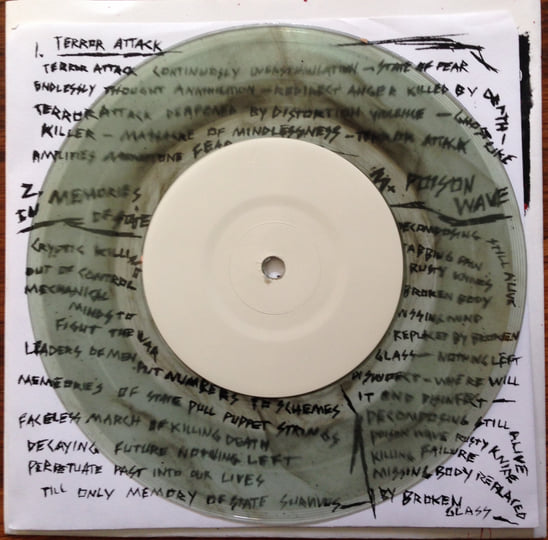 1. TERROR ATTACK
TERROR ATTACK CONTINUOSLY OVERSTIMULATION - STATE OF FEAR
ENDLESSLY THOUGHT ANNIHILATION - REDIRECT ANGER KILLED BY DEATH -
TERROR ATTACK DEAFENED BY DISTORTION VIOLENCE - GHOST LIKE
KILLER - MASSACRE OF MINDLESSNESS - TERROR ATTACK
AMPLIFIES FEAR
2. MEMORIES
OF STATE
CRYPTIC
OUT OF CONTROL
MECHANICAL
MINDS TO
FIGHT THE WAR
LEADERS OF MEN
PUT NUMBERS TO SCHEMES
MEMEORIES OF STATE PULL PUPPET STRINGS
FACELESS MARCH OF KILLING DEATH
DECAYING FUTURE NOTHING LEFT
PERPETUATE PAST INTO OUR LIVES
TILL ONLY MEMORY OF STATE SURVIVES
3. POISON
WAVE
DECOMPOSING STILL ALIVE
RUSTY KNIFE
BROKEN BODY
MISSING MIND
REPLACED BY BROKEN
GLASS - NOTHING LEFT
WHERE WILL
IT END
DECOMPOSING STILL ALIVE
POISON WAVE RUSTY KNIFE
KILLING FAILURE
MISSING BODY REPLACED
BY BROKEN
GLASS